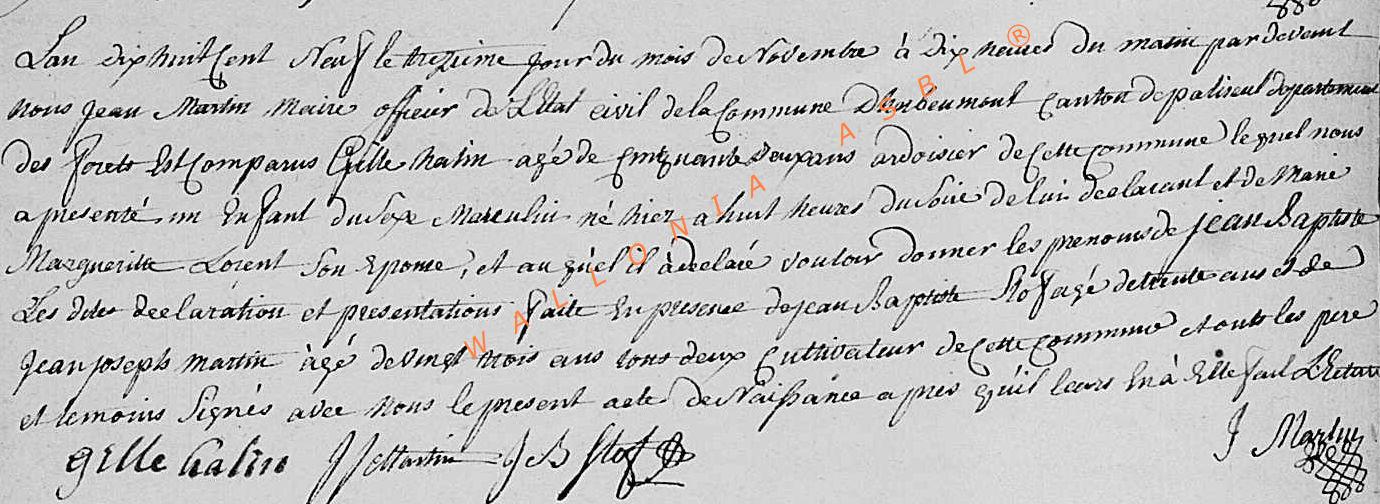 Lan dix huit Cent Neuf le treizieme jour du mois de Novembre à Dix heures du matin par devant
nous jean Martin Maire officier de L'Etat civil de la Commune D'herbeumont canton de paliseul departement
des forets Est Comparus Gille halin agé de Cinquante Deux ans ardoisier de Cette Commune lequel nous
a presenté un Enfant du Sexe Masculin né hier a huit heures du Soire de lui declarant et de Marie
Margueritte Lorent Son Epouse, et au quel il à declaré vouloir donner les prenoms de jean Baptiste
Les dites declaration et presentations faite En presence de jean Baptiste Stof agé de trente ans et de
jean joseph Martin àgé de vingt trois ans tous deux Cultivateur de Cette Commune et onts les pere
et temoins Signés avec Nous le present acte de Naissance apres qu'il leurs En à Ette fait L'Ecture
gille halin JJ Martin J B Stof J Martin
WALLONIA ASBL ®